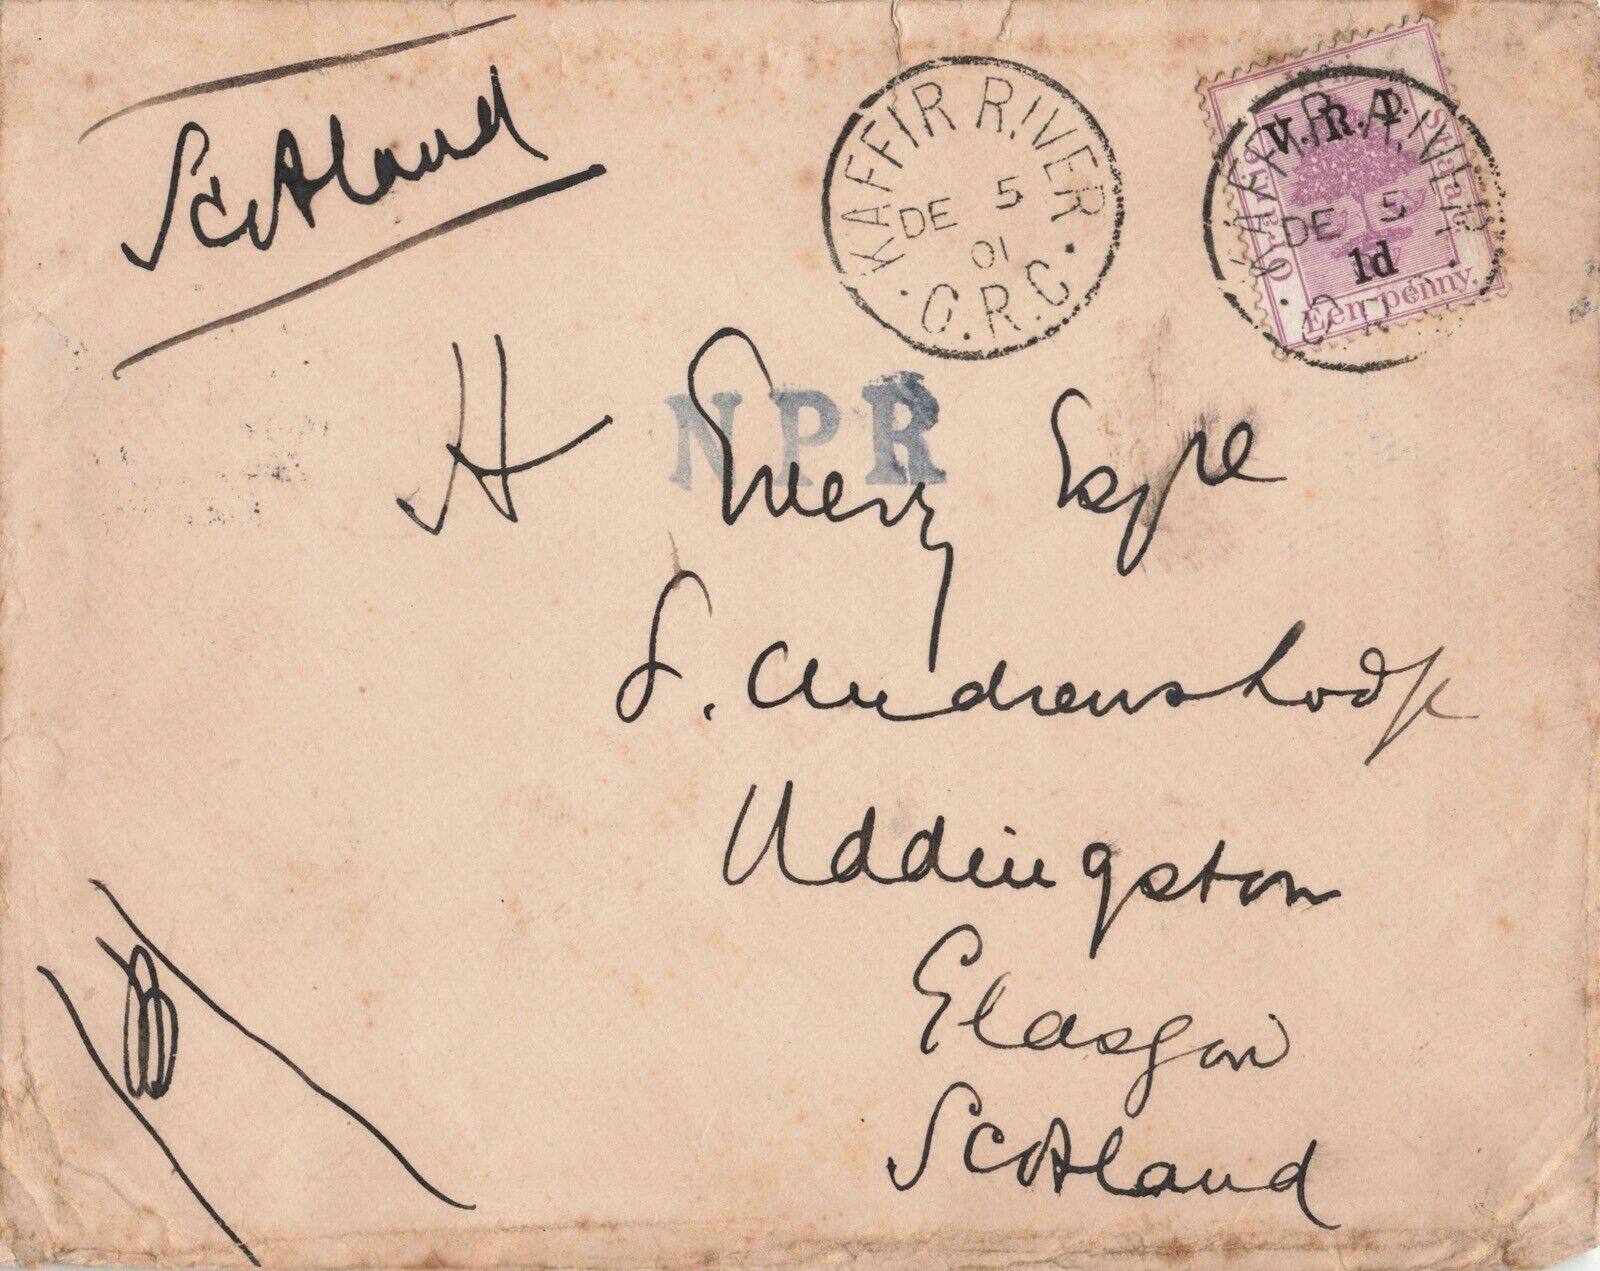 Scotland
KAFFIR RIVER
DE 5
01
O.R.C.
Oranje Vrij Staat.
V. R. I.
1d
Een penny.
KAFFIR RIVER
DE 5
NPR
H Emery Esqre
S. Andrews Lodge
Uddingston
Glasgow
Scotland